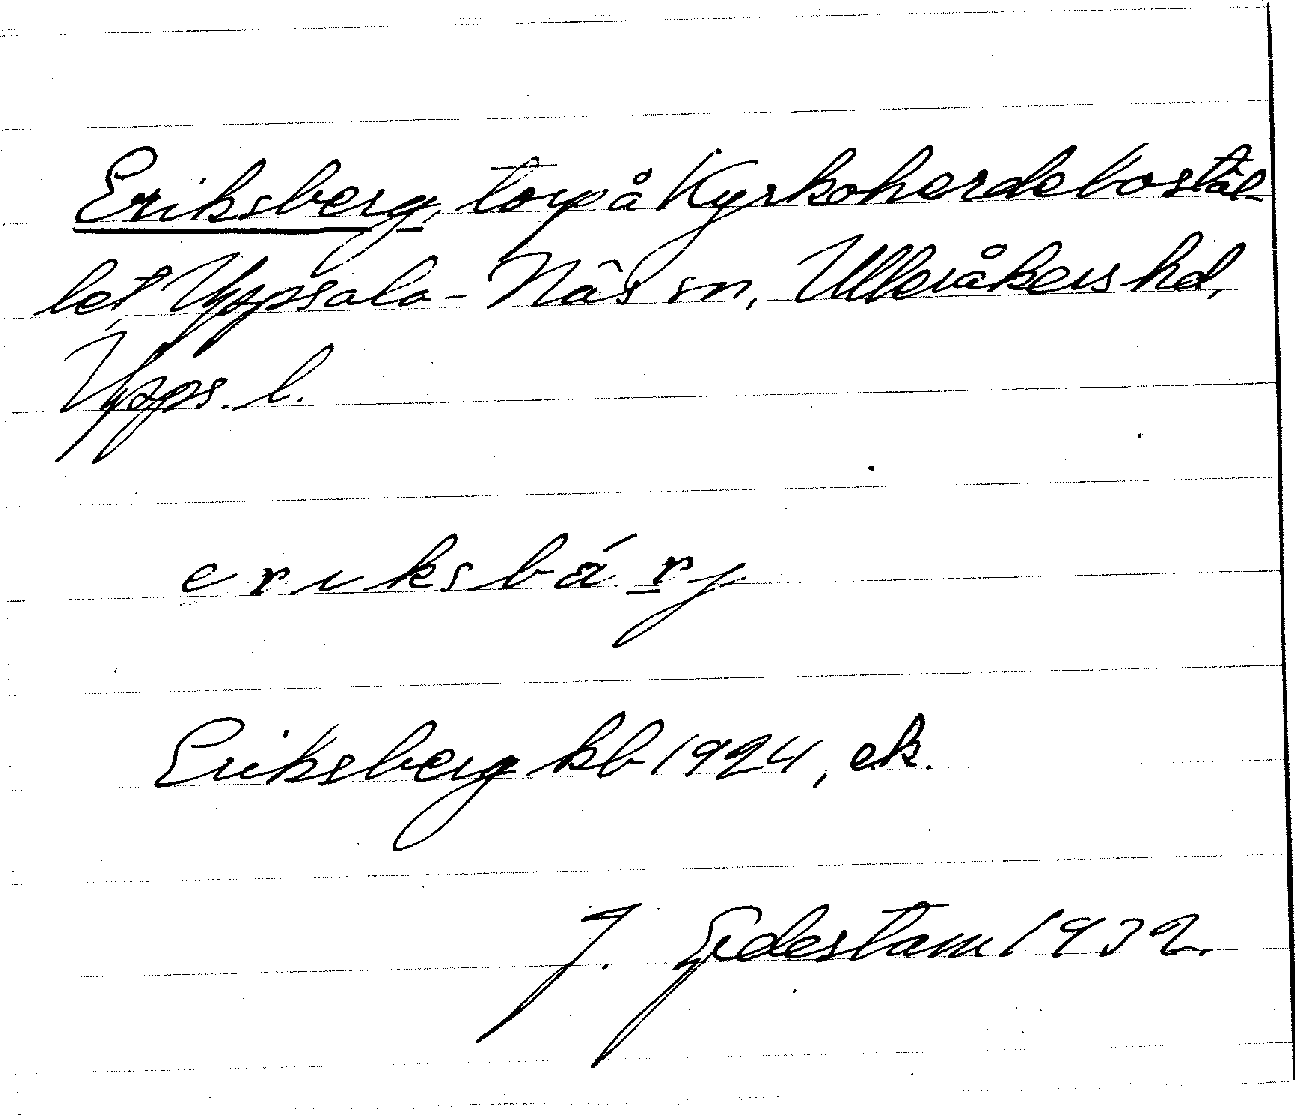 Eriksberg, torp å Kyrkoherdebostäl-
let, Uppsala-Näs sn, Ulleråkers hd,
Upps. l.
eriksbárj
Eriksberg kb 1924, ek.
J. Gidestam 1932